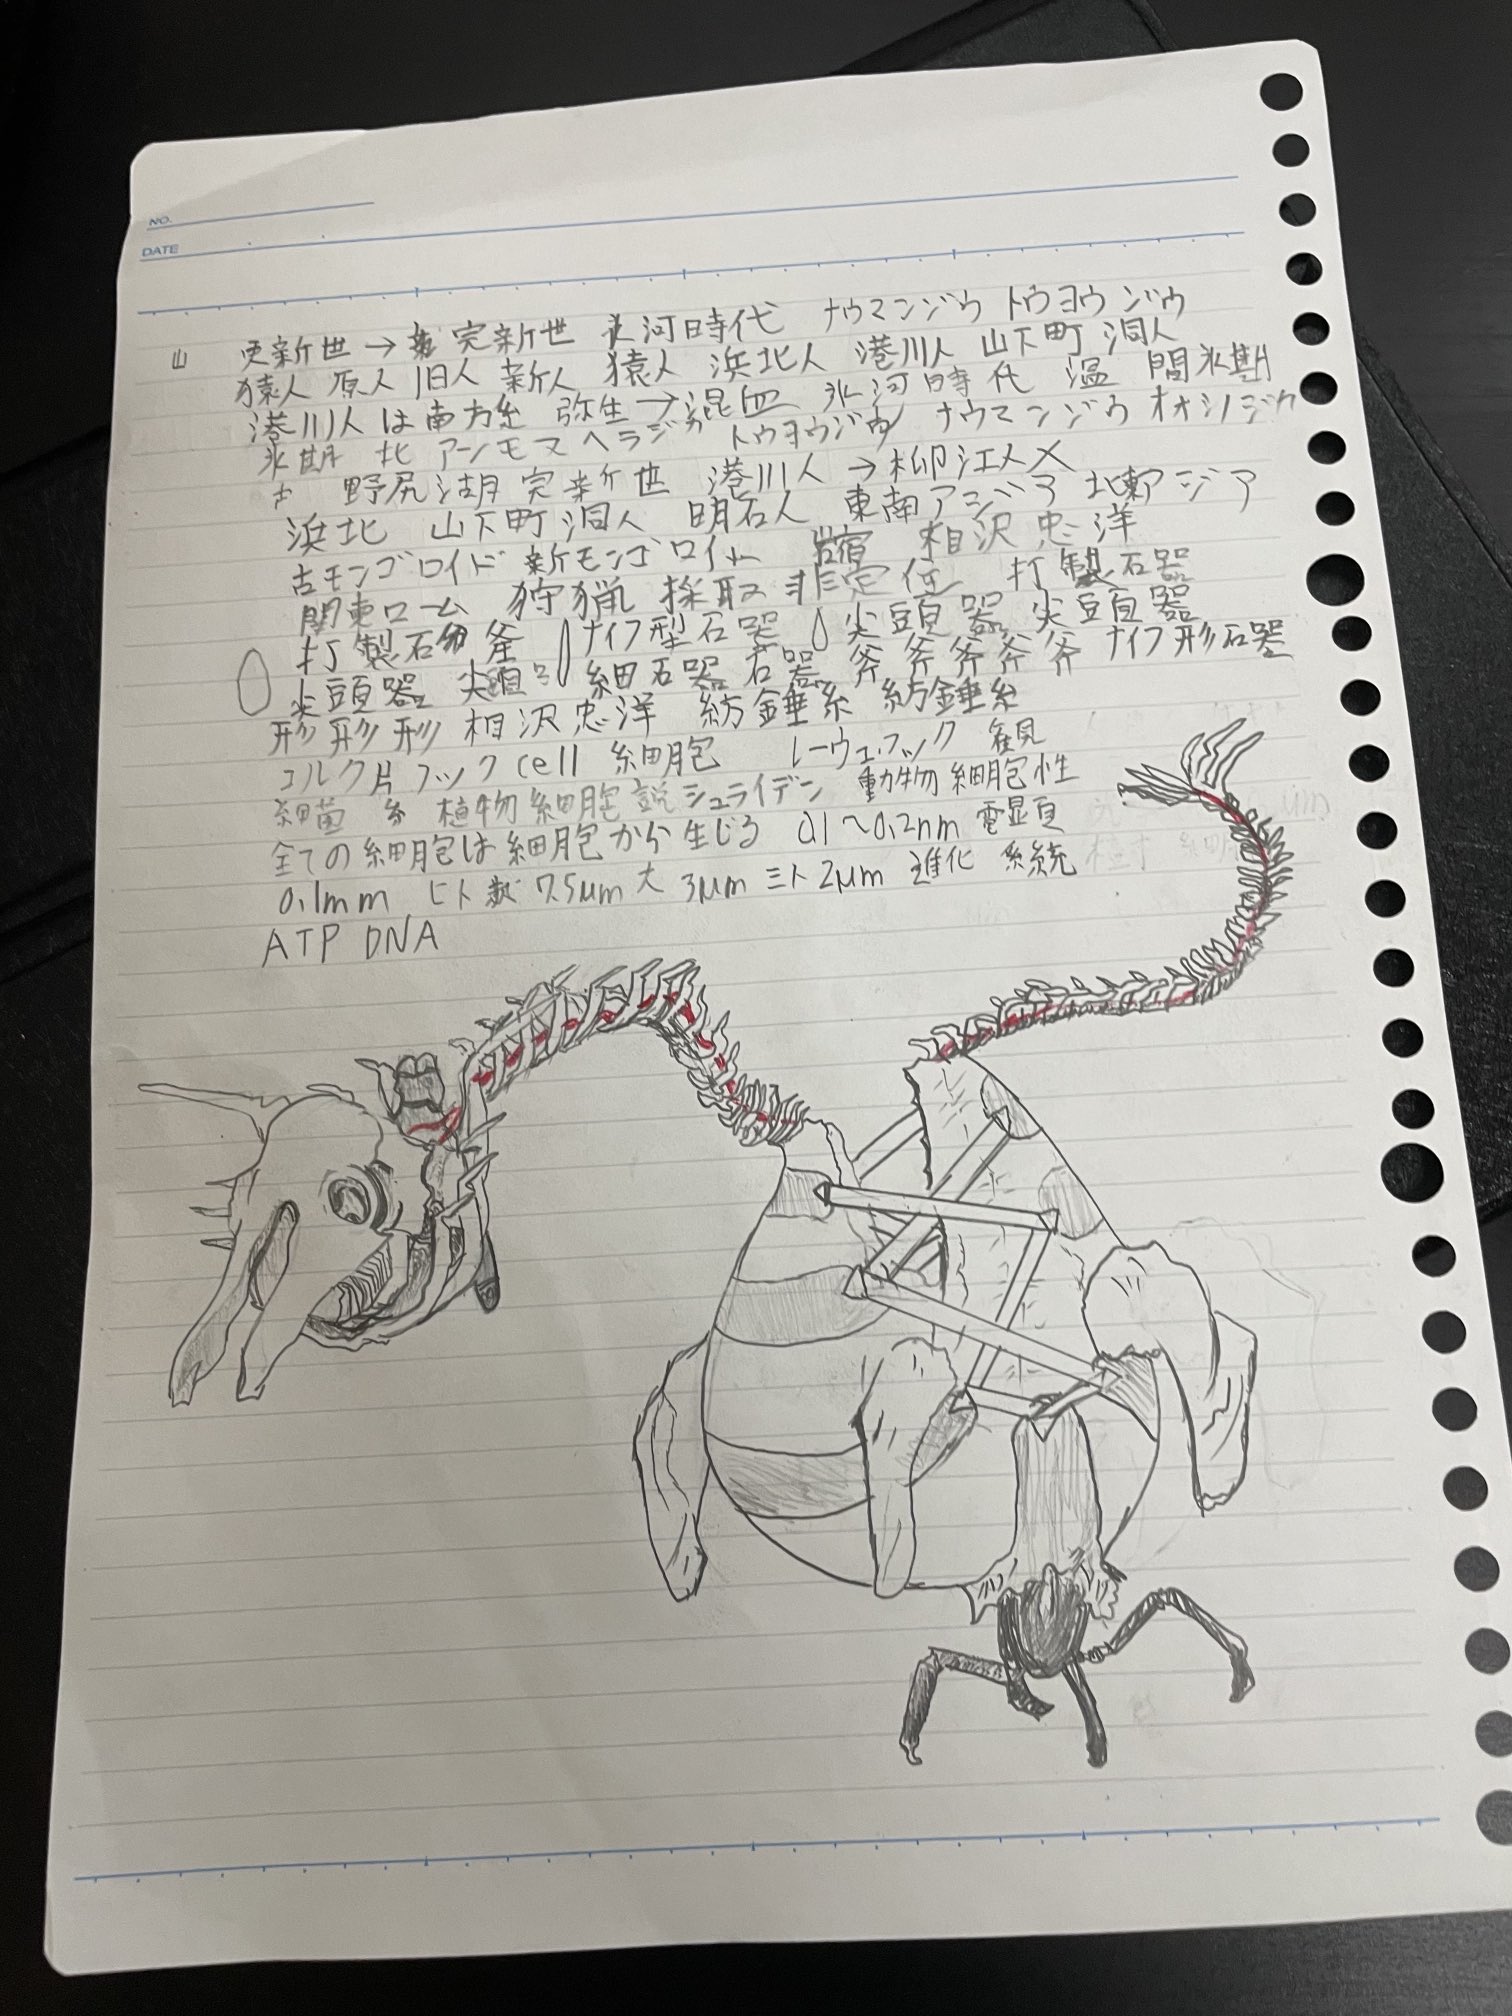 NO.
DATE
山 更新世→ 完新世 氷河時代 ナウマンゾウ トウヨウゾウ
猿人 原人 旧人 新人 猿人 浜北人 港川人 山下町洞人
港川人は南方系 弥生→混血 氷河時代 温 間氷期
氷期 北 マンモス ヘラジカ トウヨウゾウ ナウマンゾウ オオツノジカ
野尻湖 完新世 港川人→柳江人×
浜北 山下町洞人 明石人 東南アジア 北東アジア
古モンゴロイド 新モンゴロイド 岩宿 相沢忠洋
関東ローム 狩猟 採取 非定住 打製石器
打製石斧 ナイフ型石器 尖頭器 尖頭器
尖頭器 細石器 石器 斧斧斧斧斧 ナイフ形石器
形形形 相沢忠洋 紡錘糸 紡錘糸
コルク片 フック cell 細胞 レーウェ.フック 観
細菌 糸 植物細胞説 シュライデン 動物細胞性
全ての細胞は細胞から生じる 0.1〜0.2nm 電顕
0.1mm ヒト 7.5μm 大 3μm ミト2μm 進化 系統
ATP DNA